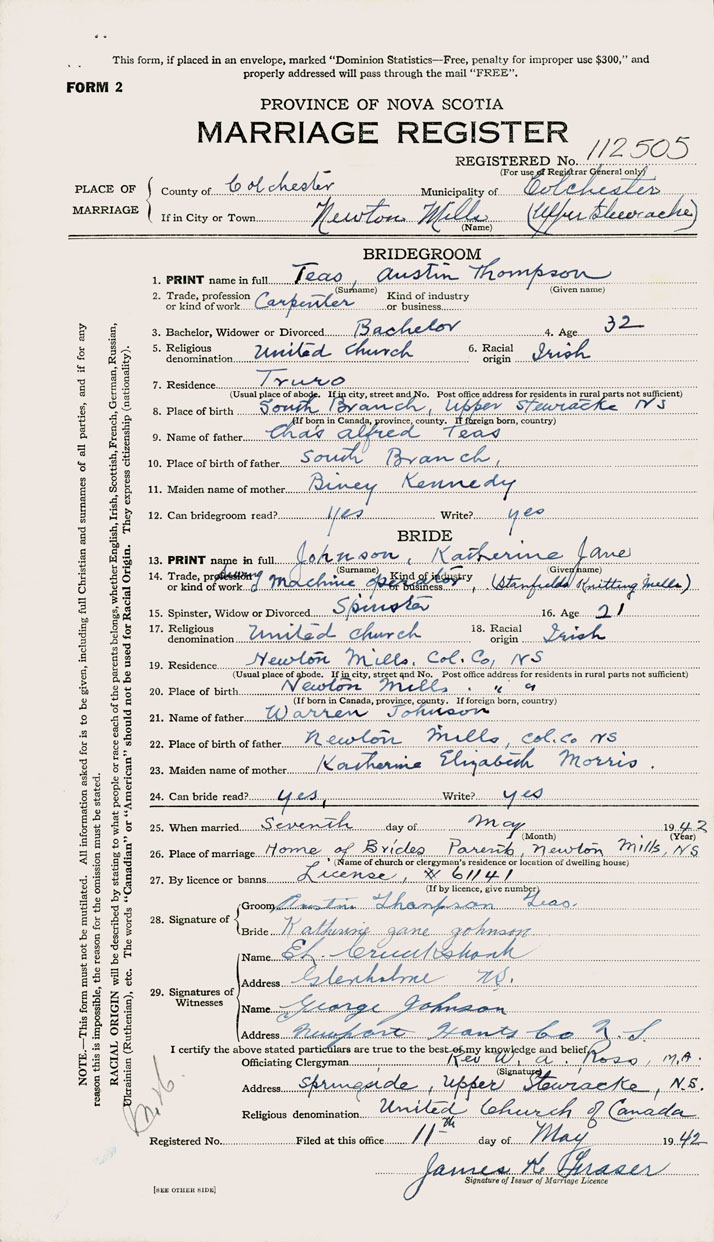 This form, if placed in an envelope, marked "Dominion Statistics—Free, penalty for improper use $300," and
properly addressed will pass through the mail "FREE".
FORM 2
PROVINCE OF NOVA SCOTIA
MARRIAGE REGISTER
REGISTERED No. 112505
(For use of Registrar General only)
PLACE OF MARRIAGE
County of Colchester Municipality of Colchester
If in City or Town Newton Mills (Upper Stewiacke)
(Name)
BRIDEGROOM
1. PRINT name in full Teas, Austin Thompson
(Surname) (Given name)
2. Trade, profession or kind of work Carpenter Kind of industry or business
3. Bachelor, Widower or Divorced Bachelor 4. Age 32
5. Religious denomination United Church 6. Racial origin Irish
7. Residence Truro
(Usual place of abode. If in city, street and No. Post office address for residents in rural parts not sufficient)
8. Place of birth South Branch, Upper Stewiacke NS
(If born in Canada, province, county. If foreign born, country)
9. Name of father Chas Alfred Teas
10. Place of birth of father South Branch,
11. Maiden name of mother Biney Kennedy
12. Can bridegroom read? yes Write? yes
BRIDE
13. PRINT name in full Johnson, Katherine Jane
(Surname) (Given name)
14. Trade, profession or kind of work machine operator, Kind of industry or business (Stanfields Knitting Mills)
15. Spinster, Widow or Divorced Spinster 16. Age 21
17. Religious denomination United Church 18. Racial origin Irish
19. Residence Newton Mills. Col. Co, NS
(Usual place of abode. If in city, street and No. Post office address for residents in rural parts not sufficient)
20. Place of birth Newton Mills. " "
(If born in Canada, province, county. If foreign born, country)
21. Name of father Warren Johnson
22. Place of birth of father Newton Mills, Col. Co NS
23. Maiden name of mother Katherine Elizabeth Morris.
24. Can bride read? yes, Write? yes
25. When married Seventh day of May 1942
(Month) (Year)
26. Place of marriage Home of Brides Parents, Newton Mills, NS
(Name of church or clergyman's residence or location of dwelling house)
27. By licence or banns License, # 61141
(If by licence, give number)
28. Signature of
Groom Austin Thompson Teas.
Bride Katherine Jane Johnson
29. Signatures of Witnesses
Name Cruickshank
Address Glenholme NS.
Name George Johnson
Address Newport Hants Co N.S
I certify the above stated particulars are true to the best of my knowledge and belief.
Officiating Clergyman Rev W. A. Ross, M.A.
(Signature)
Address Springside, Upper Stewiacke, N.S.
Religious denomination United Church of Canada
Registered No. Filed at this office 11th day of May 1942
James K Fraser
Signature of Issuer of Marriage Licence
[SEE OTHER SIDE]
NOTE.—This form must not be mutilated. All information asked for is to be given, including full Christian and surnames of all parties, and if for any
reason this is impossible, the reason for the omission must be stated.
RACIAL ORIGIN will be described by stating to what people or race each of the parents belongs, whether English, Irish, Scottish, French, German, Russian,
Ukrainian (Ruthenian), etc. The words "Canadian" or "American" should not be used for Racial Origin. They express citizenship (nationality).